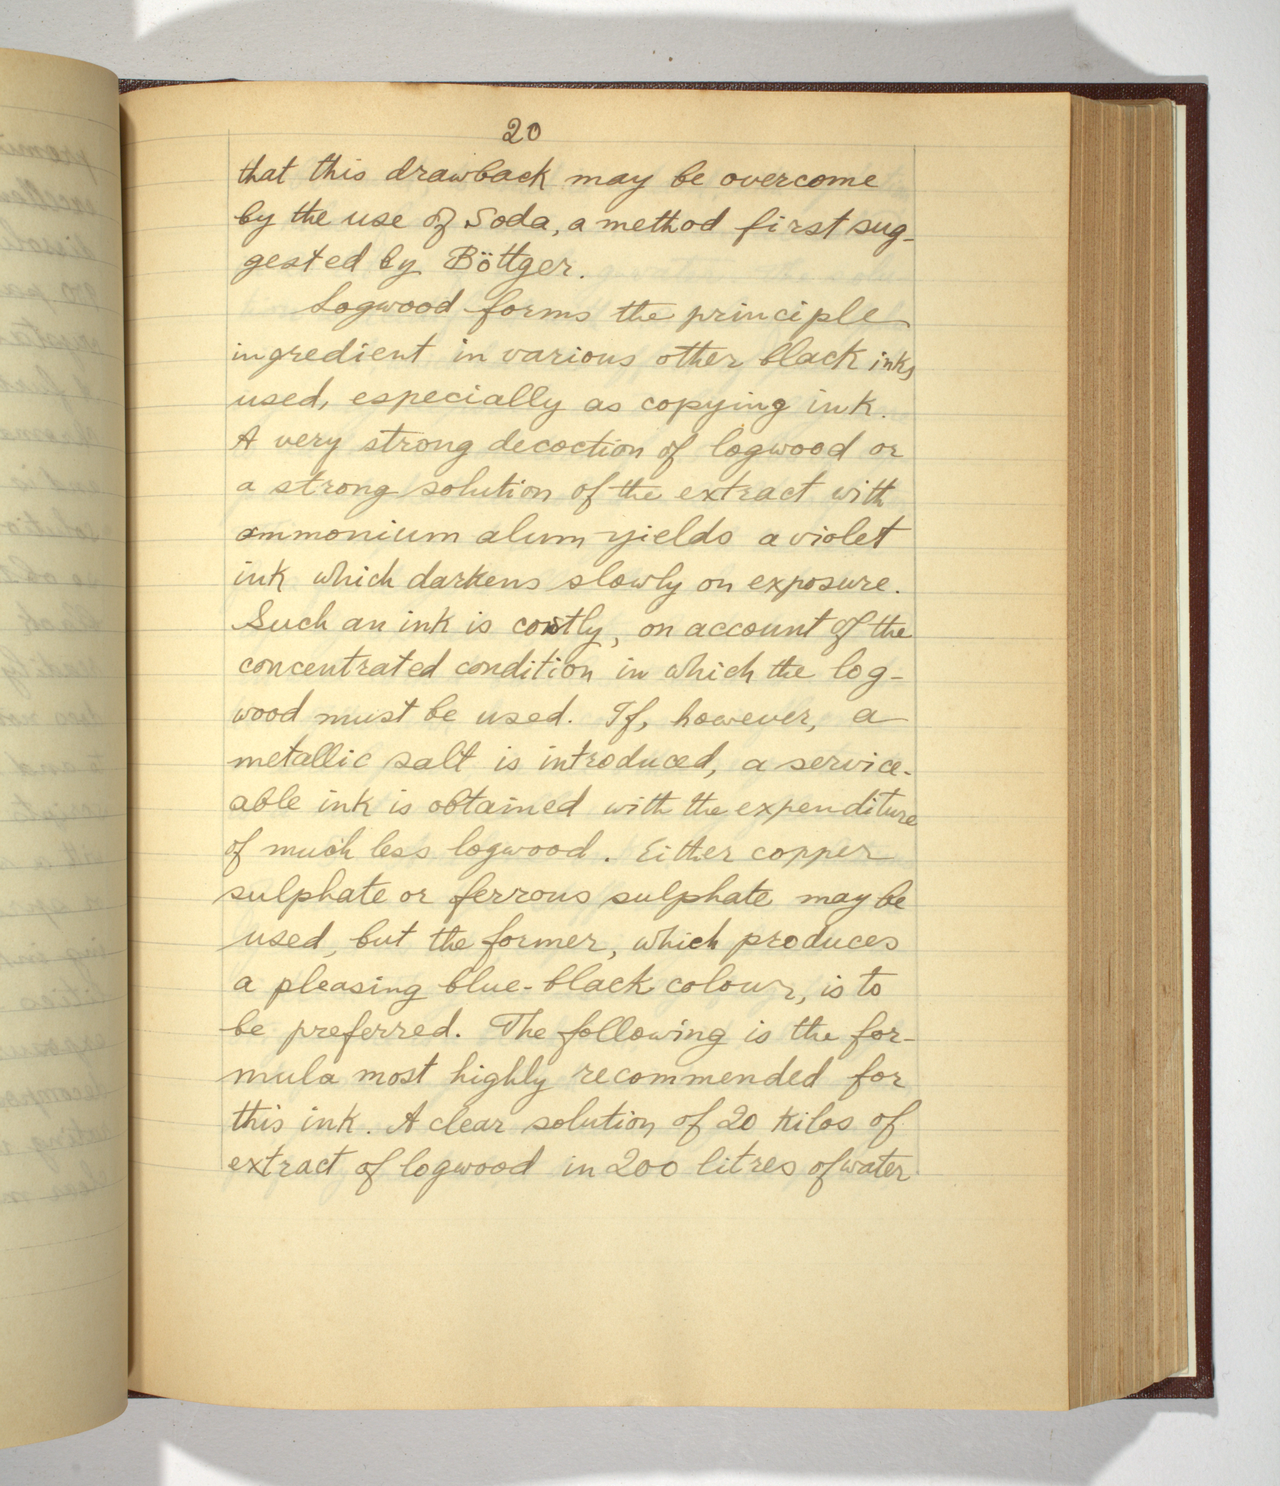 20
that this drawback may be overcome
by the use of Soda, a method first sug-
gested by Böttger.
Logwood forms the principle
ingredient in various other black inks
used, especially as copying ink.
A very strong decoction of logwood or
a strong solution of the extract with
ammonium alum yields a violet
ink which darkens slowly on exposure.
Such an ink is costly, on account of the
concentrated condition in which the log-
wood must be used. If, however, a
metallic salt is introduced, a service-
able ink is obtained with the expenditure
of much less logwood. Either copper
sulphate or ferrous sulphate may be
used, but the former, which produces
a pleasing blue-black colour, is to
be preferred. The following is the for-
mula most highly recommended for
this ink. A clear solution of 20 Kilos of
extract of logwood in 200 litres of water